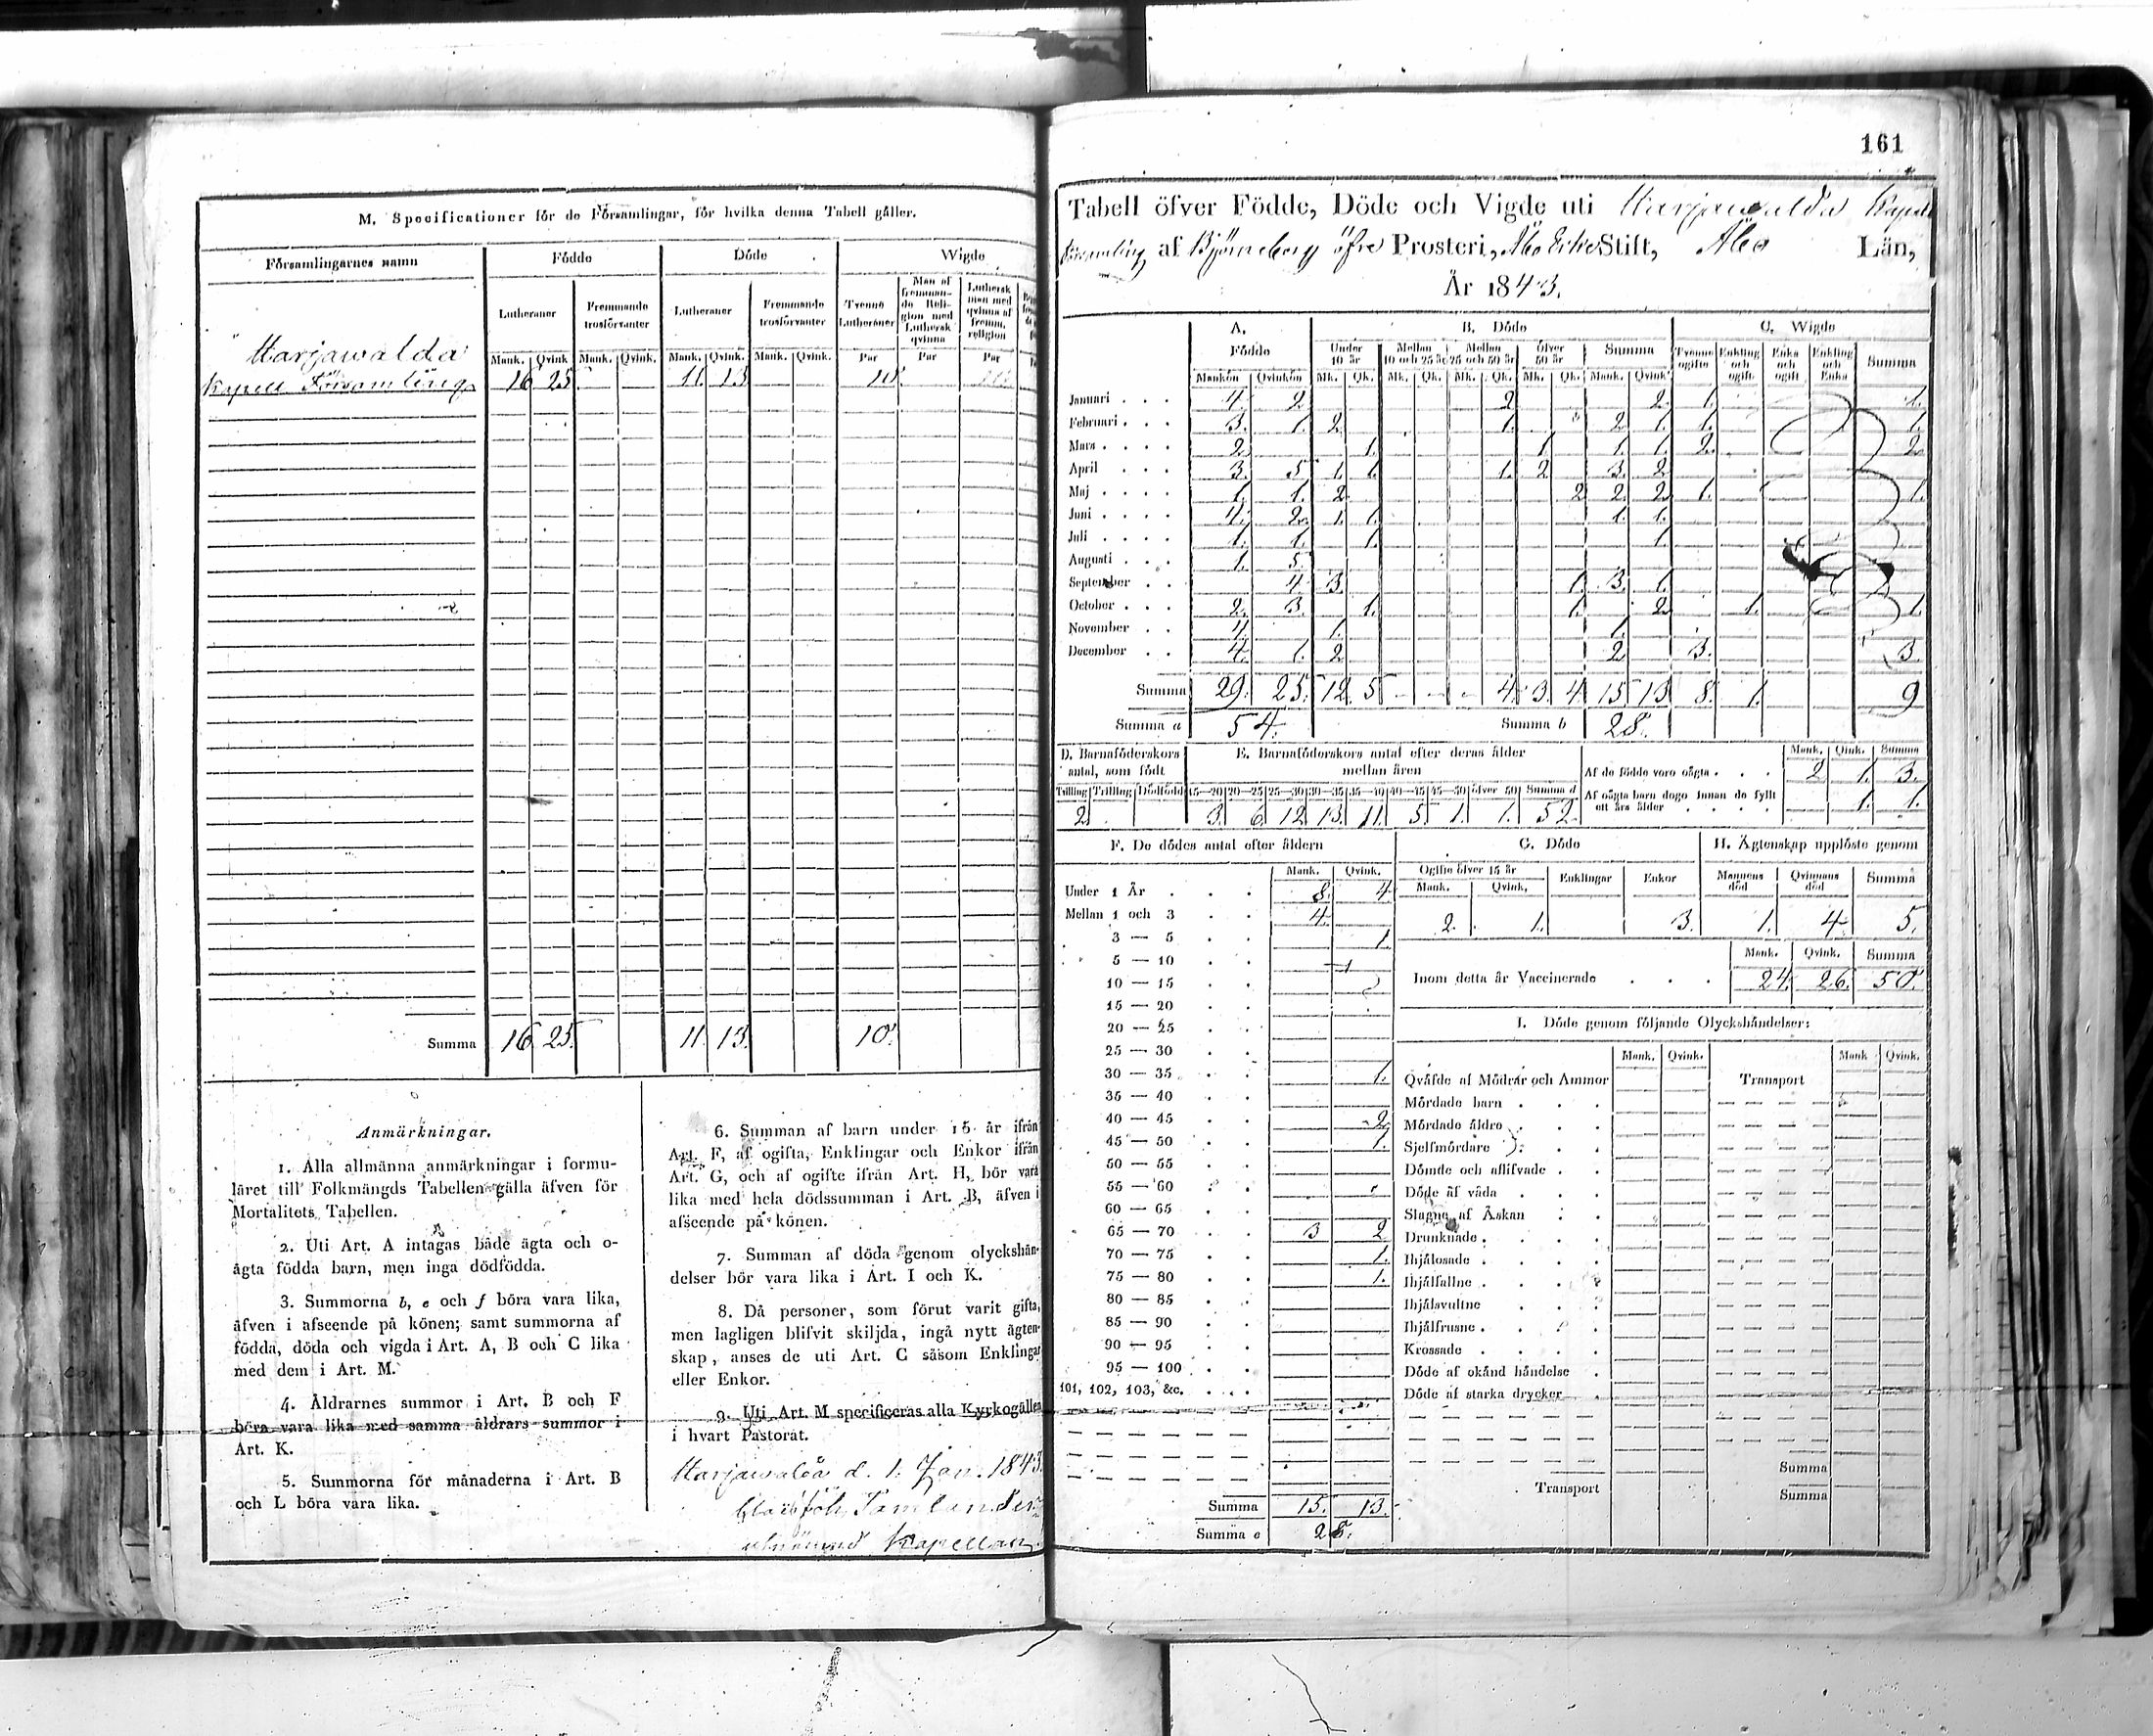 M. Specificationer för de Församlingar, för hvilka denna Tabell gäller.
Församlingarnes namn Födde Döde Wigde
Lutheraner Fremmande trosförvanter Lutheraner Fremmande trosförvanter Tvenne Lutheraner Man af fremmande Religion med Luthersk qvinna Luthersk man med qvinna af fremm. religion
Mank. Qvink Mank. Qvink. Mank. Qvink. Mank. Qvink. Par Par Par
Harjawalda
Kapell Församling 16 25 11. 13 10.
Summa 16 25. 11. 13. 10.
Anmärkningar.
1. Alla allmänna anmärkningar i formu-
läret till Folkmängds Tabellen gälla äfven för
Mortalitets Tabellen.
2. Uti Art. A intagas både ägta och o-
ägta födda barn, men inga dödfödda.
3. Summorna b, e och f böra vara lika,
äfven i afseende på könen; samt summorna af
födda, döda och vigda i Art. A, B och C lika
med dem i Art. M.
4. Åldrarnes summor i Art. B och F
böra vara lika med samma åldrars summor i
Art. K.
5. Summorna för månaderna i Art. B
och L böra vara lika.
6. Summan af barn under 15 år ifrån
Art. F, af ogifta, Enklingar och Enkor ifrån
Art. G, och af ogifte ifrån Art. H, bör vara
lika med hela dödssumman i Art. B, äfven i
afseende på könen.
7. Summan af döda genom olyckshän-
delser bör vara lika i Art. I och K.
8. Då personer, som förut varit gifta,
men lagligen blifvit skiljda, ingå nytt ägten-
skap, anses de uti Art. C såsom Enklingar
eller Enkor.
9. Uti Art. M specificeras alla Kyrkogällen
i hvart Pastorat.
Harjawalda d. 1. Jan. 1843.
Kapellan
161
Tabell öfver Födde, Döde och Vigde uti Harjawalda Kapell
Församling af Björneborg öfre Prosteri, Åbo Erke Stift, Åbo Län,
År 1843.
A. Födde B. Döde C. Wigde
Under 10 år Mellan 10 och 25 år Mellan 25 och 50 år öfver 50 år Summa Tvenne ogifte Enkling och ogift Enka och ogift Enkling och Enka Summa
Mankön Qvinkön Mk. Qk. Mk. Qk. Mk. Qk. Mk. Qk. Mank. Qvink.
Januari 4. 2. 2 2. 1. 1.
Februari 3. 1. 2 1. 2 1. 1. 1.
Mars 2. 1. 1 1. 1. 2. 2.
April 3. 5 1. 1. 1. 2 3. 2
Maj 1. 1. 2 2 2. 2. 1. 1.
Juni 4. 2. 1. 1. 1. 1.
Juli 1. 1. 1. 1.
Augusti 1. 5
September 4 3. 1. 3. 1.
October 2. 3. 1. 1. 2 1. 1.
November 4. 1. 1.
December 4. 1. 2 2 3. 3.
Summa 29. 25. 12 5 - - - 4. 3. 4. 15 13 8. 1. 9
Summa a 54. Summa b 28.
D. Barnaföderskors antal, som födt
Tvilling Trilling Dödfödd
2.
E. Barnaföderskors antal efter deras ålder
mellan åren
15—20 20—25 25—30 30—35 35—40 40—45 45—50 öfver 50 Summa d
3. 6. 12 13. 11. 5 1. 1. 52
Mank. Qink. Summa
Af de födde voro oägta . . . 2 1. 3.
Af oägta barn dogo innan de fyllt
ett års ålder 1. 1.
F. De dödes antal efter åldern
Mank. Qvink.
Under 1 År 8. 4.
Mellan 1 och 3 4.
3 — 5 1.
5 — 10
10 — 15
15 — 20
20 — 25
25 — 30
30 — 35 1.
35 — 40
40 — 45 2
45 — 50 1.
50 — 55
55 — 60
60 — 65
65 — 70 3 2
70 — 75 1.
75 — 80 1.
80 — 85
85 — 90
90 — 95
95 — 100
101, 102, 103, &c.
Summa 15. 13.
Summa e 28.
G. Döde
Ogifte öfver 15 år Enklingar Enkor
Mank. Qvink.
2. 1. 3.
H. Ägtenskap upplöste genom
Mannens död Qvinnans död Summa
1. 4. 5.
Mank. Qvink. Summa
Inom detta år Vaccinerade . . . 24. 26. 50.
I. Döde genom följande Olyckshändelser:
Mank. Qvink. Mank Qvink.
Qväfde af Mödrar och Ammor Transport
Mördade barn
Mördade äldre
Sjelfmördare
Dömde och aflifvade
Döde af våda
Slagne af Åskan
Drunknade
Ihjälosade
Ihjälfallne
Ihjälsvultne
Ihjälfrusne
Krossade
Döde af okänd händelse
Döde af starka drycker
Summa
Transport Summa